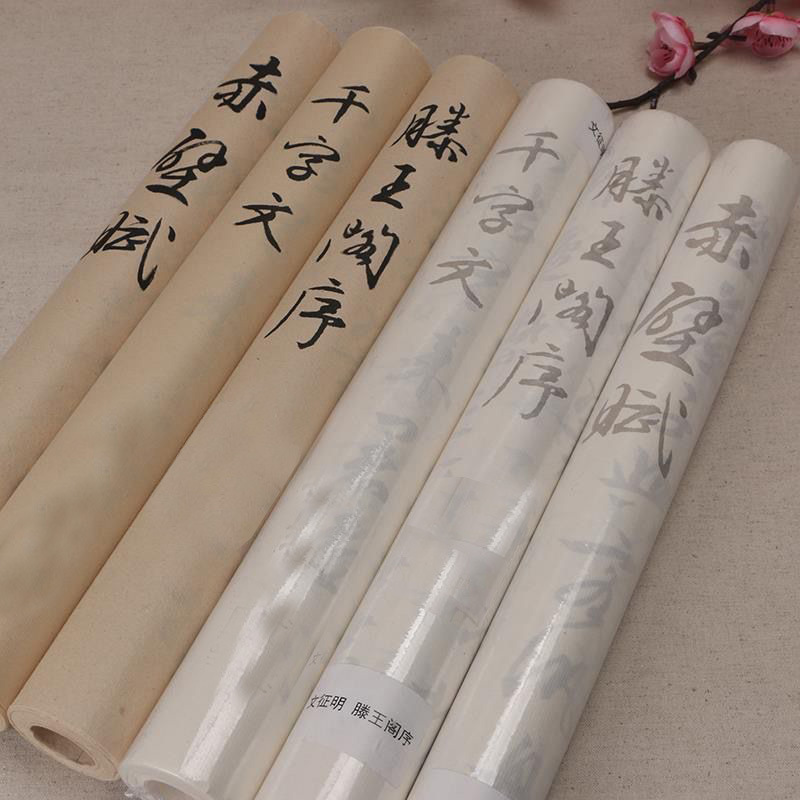 赤壁赋
千字文
滕王阁序
千字文
滕王阁序
赤壁赋
文征明 滕王阁序